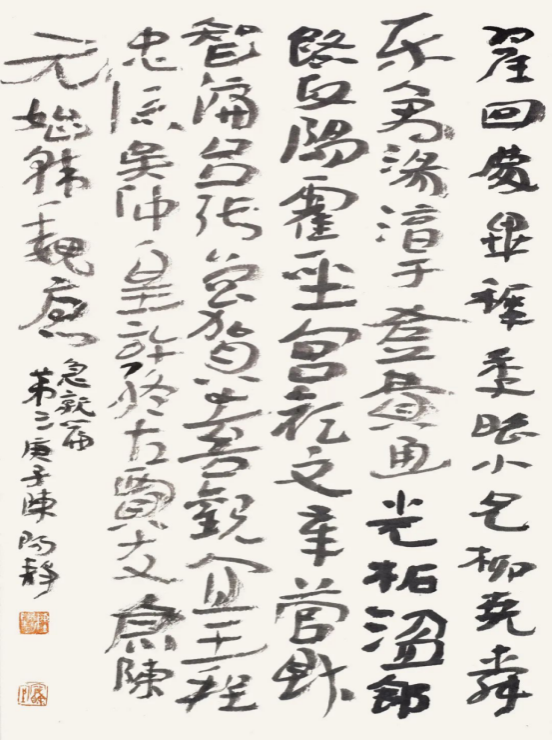 翟回慶畢稚季昭小兄柳堯舜
乐禹湯淳于登費通光柘溫舒
路正陽霍聖宮顏文章管財
智偏呂張魯賀喜觀宜王程
忠信吳仲皇許終古賈友倉陳
元始韓魏唐
急就篇
第二庚子陳陽靜